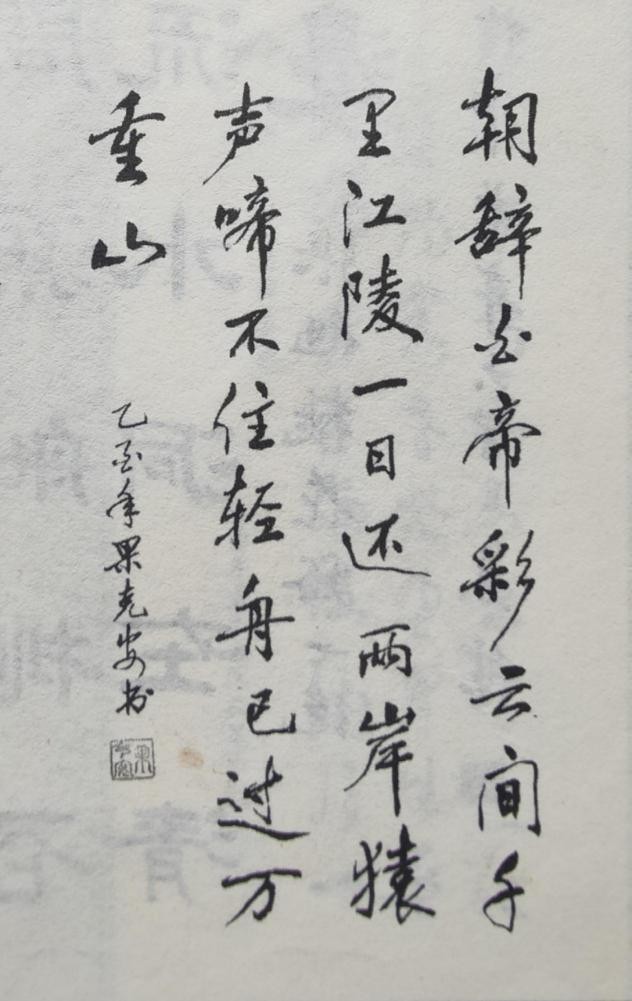 朝辞白帝彩云间千
里江陵一日还两岸猿
声啼不住轻舟已过万
重山
乙酉年果克安书